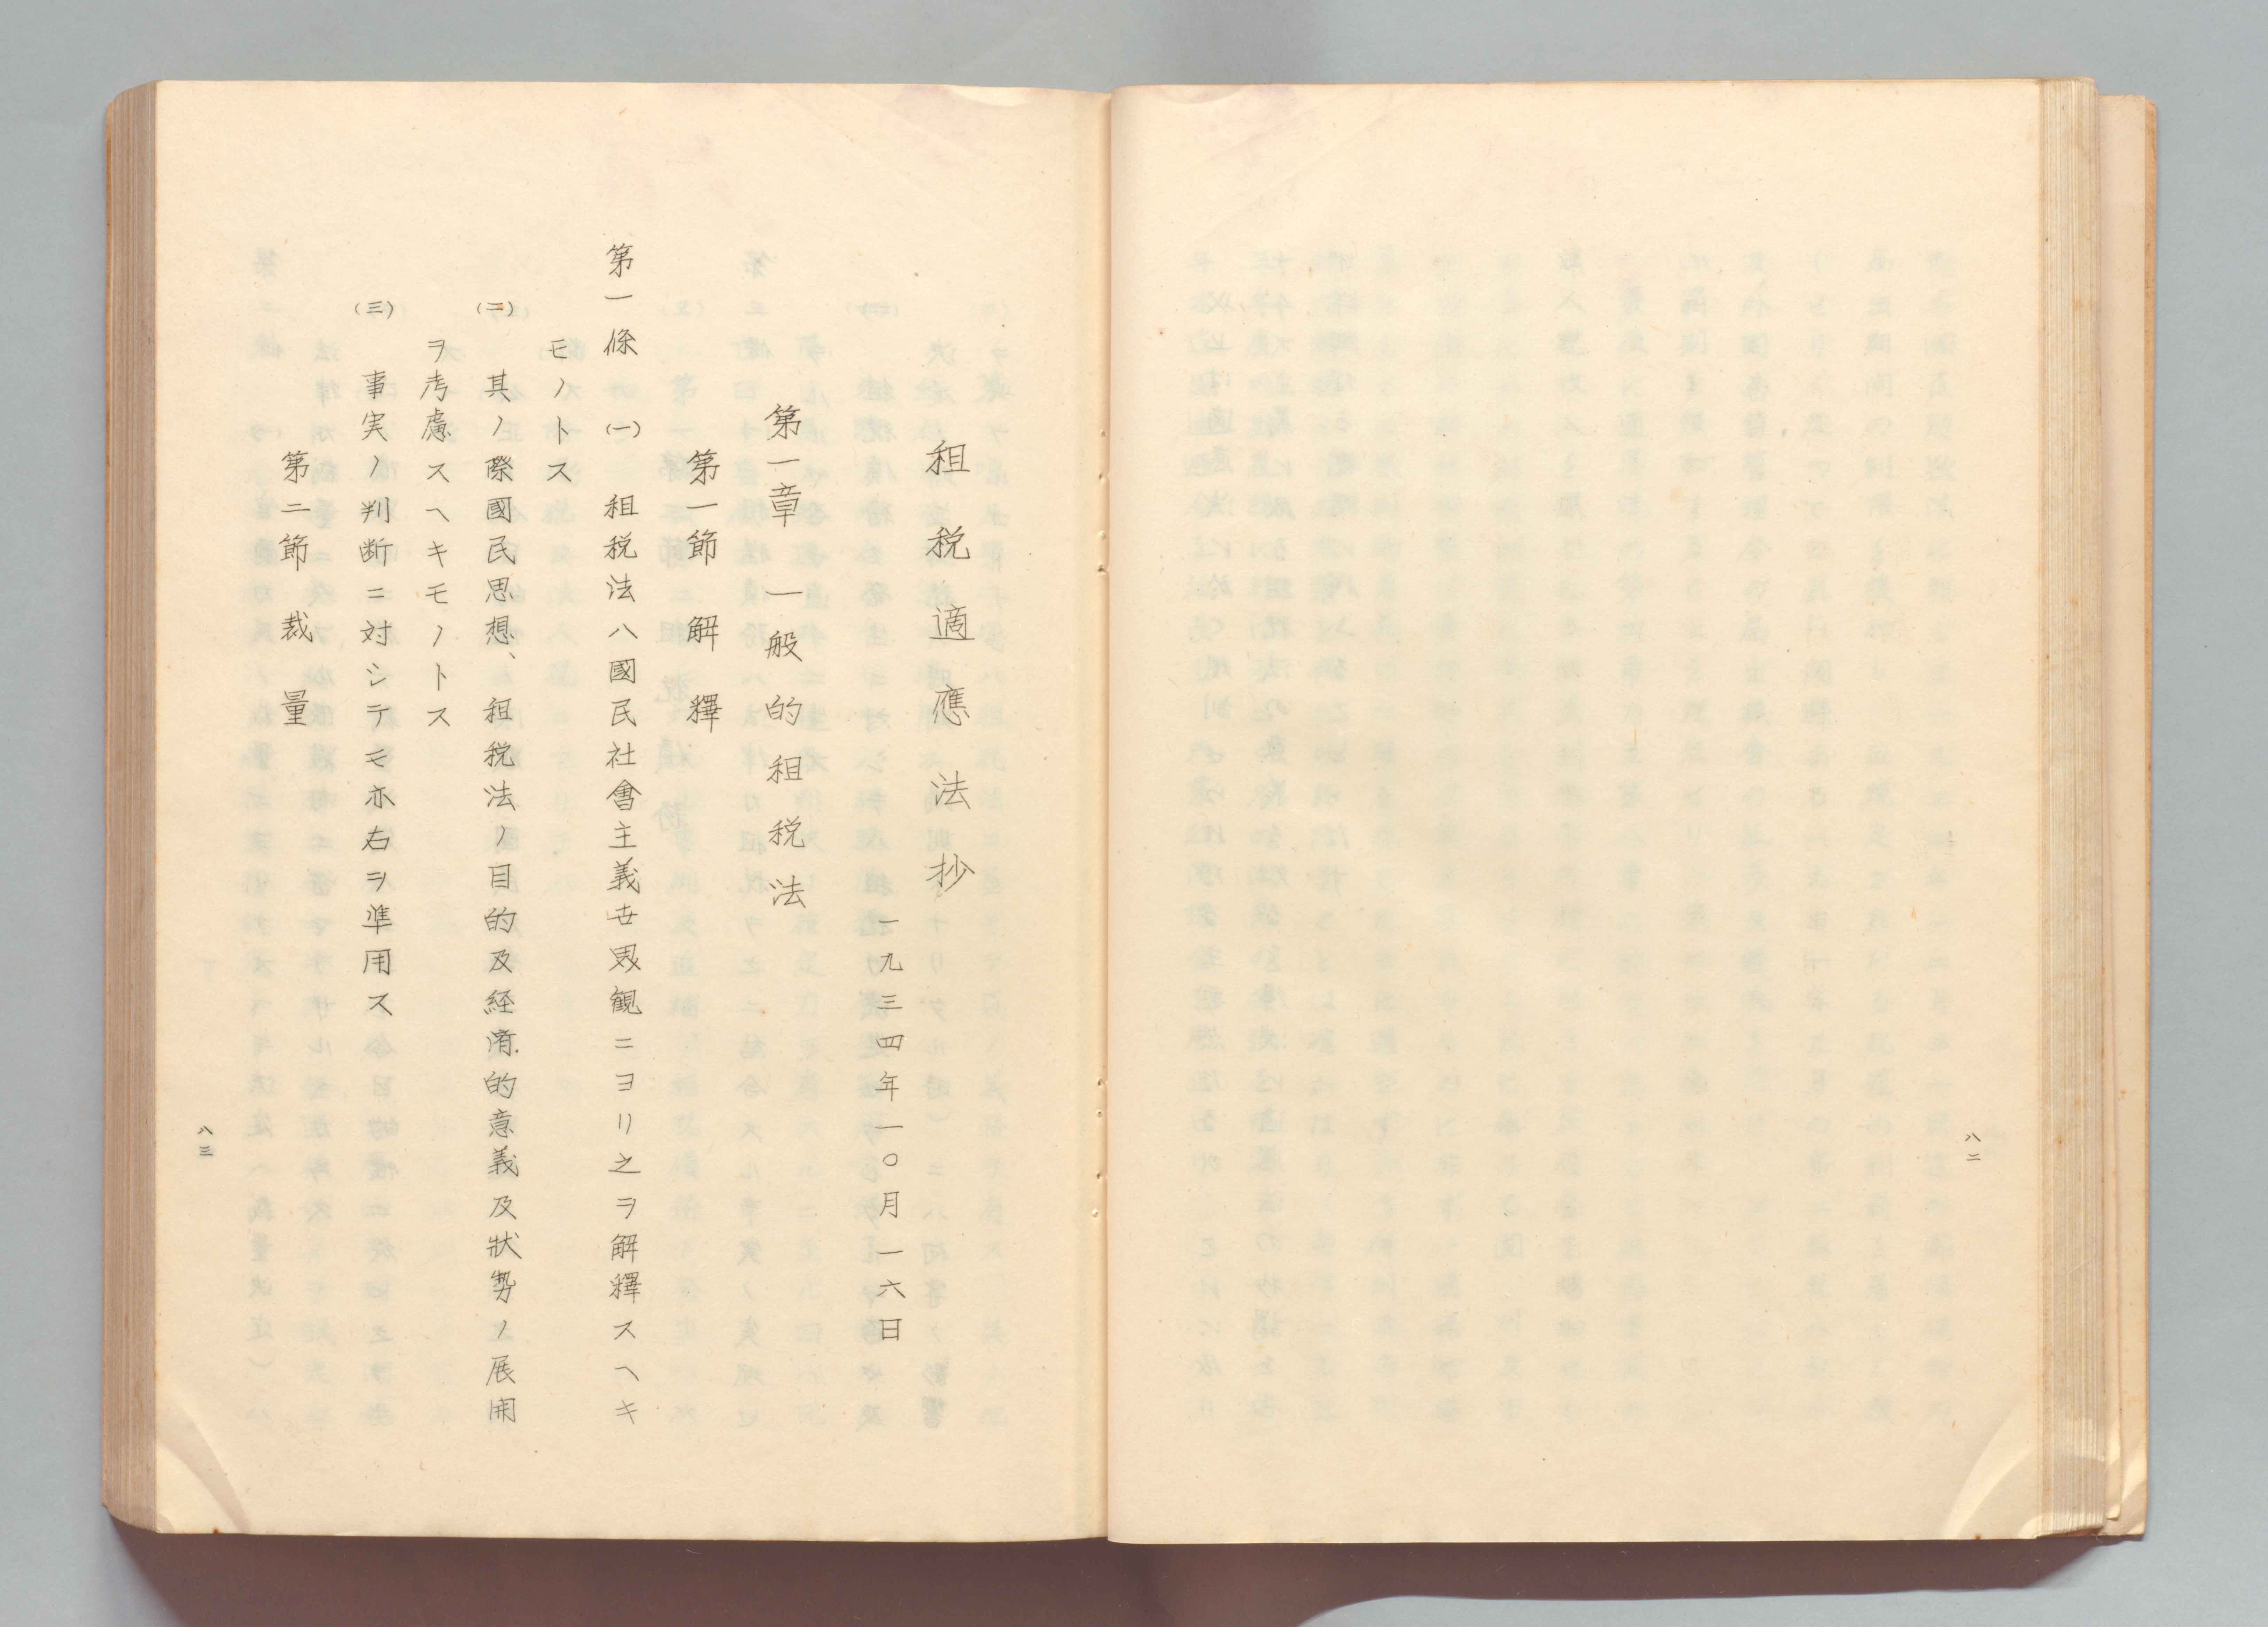 八二
租税適應法抄
一九三四年一〇月一六日
第一章 一般的租税法
第一節 解釋
第一條 (一) 租税法ハ國民社會主義世界観ニヨリ之ヲ解釋スヘキ
モノトス
(二) 其ノ際國民思想、租税法ノ目的及経済的意義及狀勢ノ展開
ヲ考慮スヘキモノトス
(三) 事実ノ判断ニ対シテモ亦右ヲ準用ス
第二節 裁量
八三